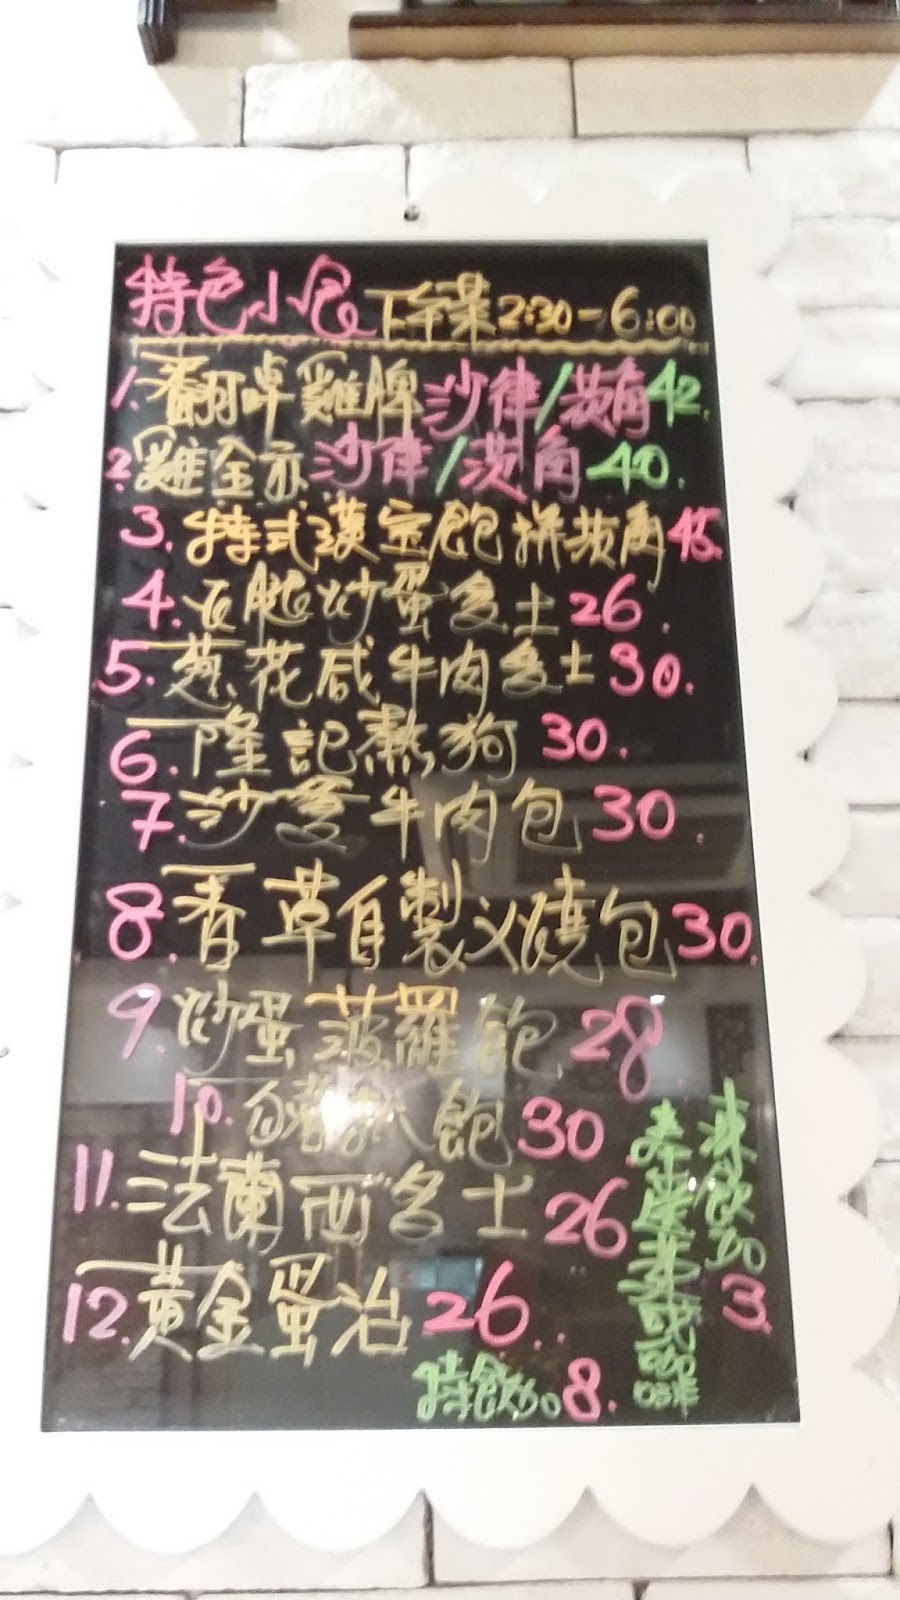 特色小食 下午茶 2:30-6:00
1. 香 雞髀 沙律/茨角 42.
2. 雞全亦 沙律/茨角 40.
3. 特式漢宝飽拼茨角 45.
4. 火腿炒蛋多士 26.
5. 葱花咸牛肉多士 30.
6. 隆記熱狗 30.
7. 沙爹牛肉包 30.
8. 香草自製义燒包 30.
9. 炒蛋菠羅飽 28.
10. 飽 30
11. 法蘭西多士 26
12. 黃金蛋治 26
特飲加 8.
奉上 茶或 咖啡
凍飲加 3.